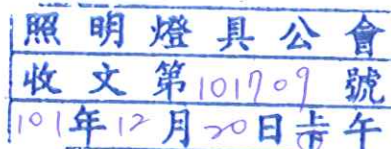 照明燈具公會
收文第101709號
101年12月20日下午